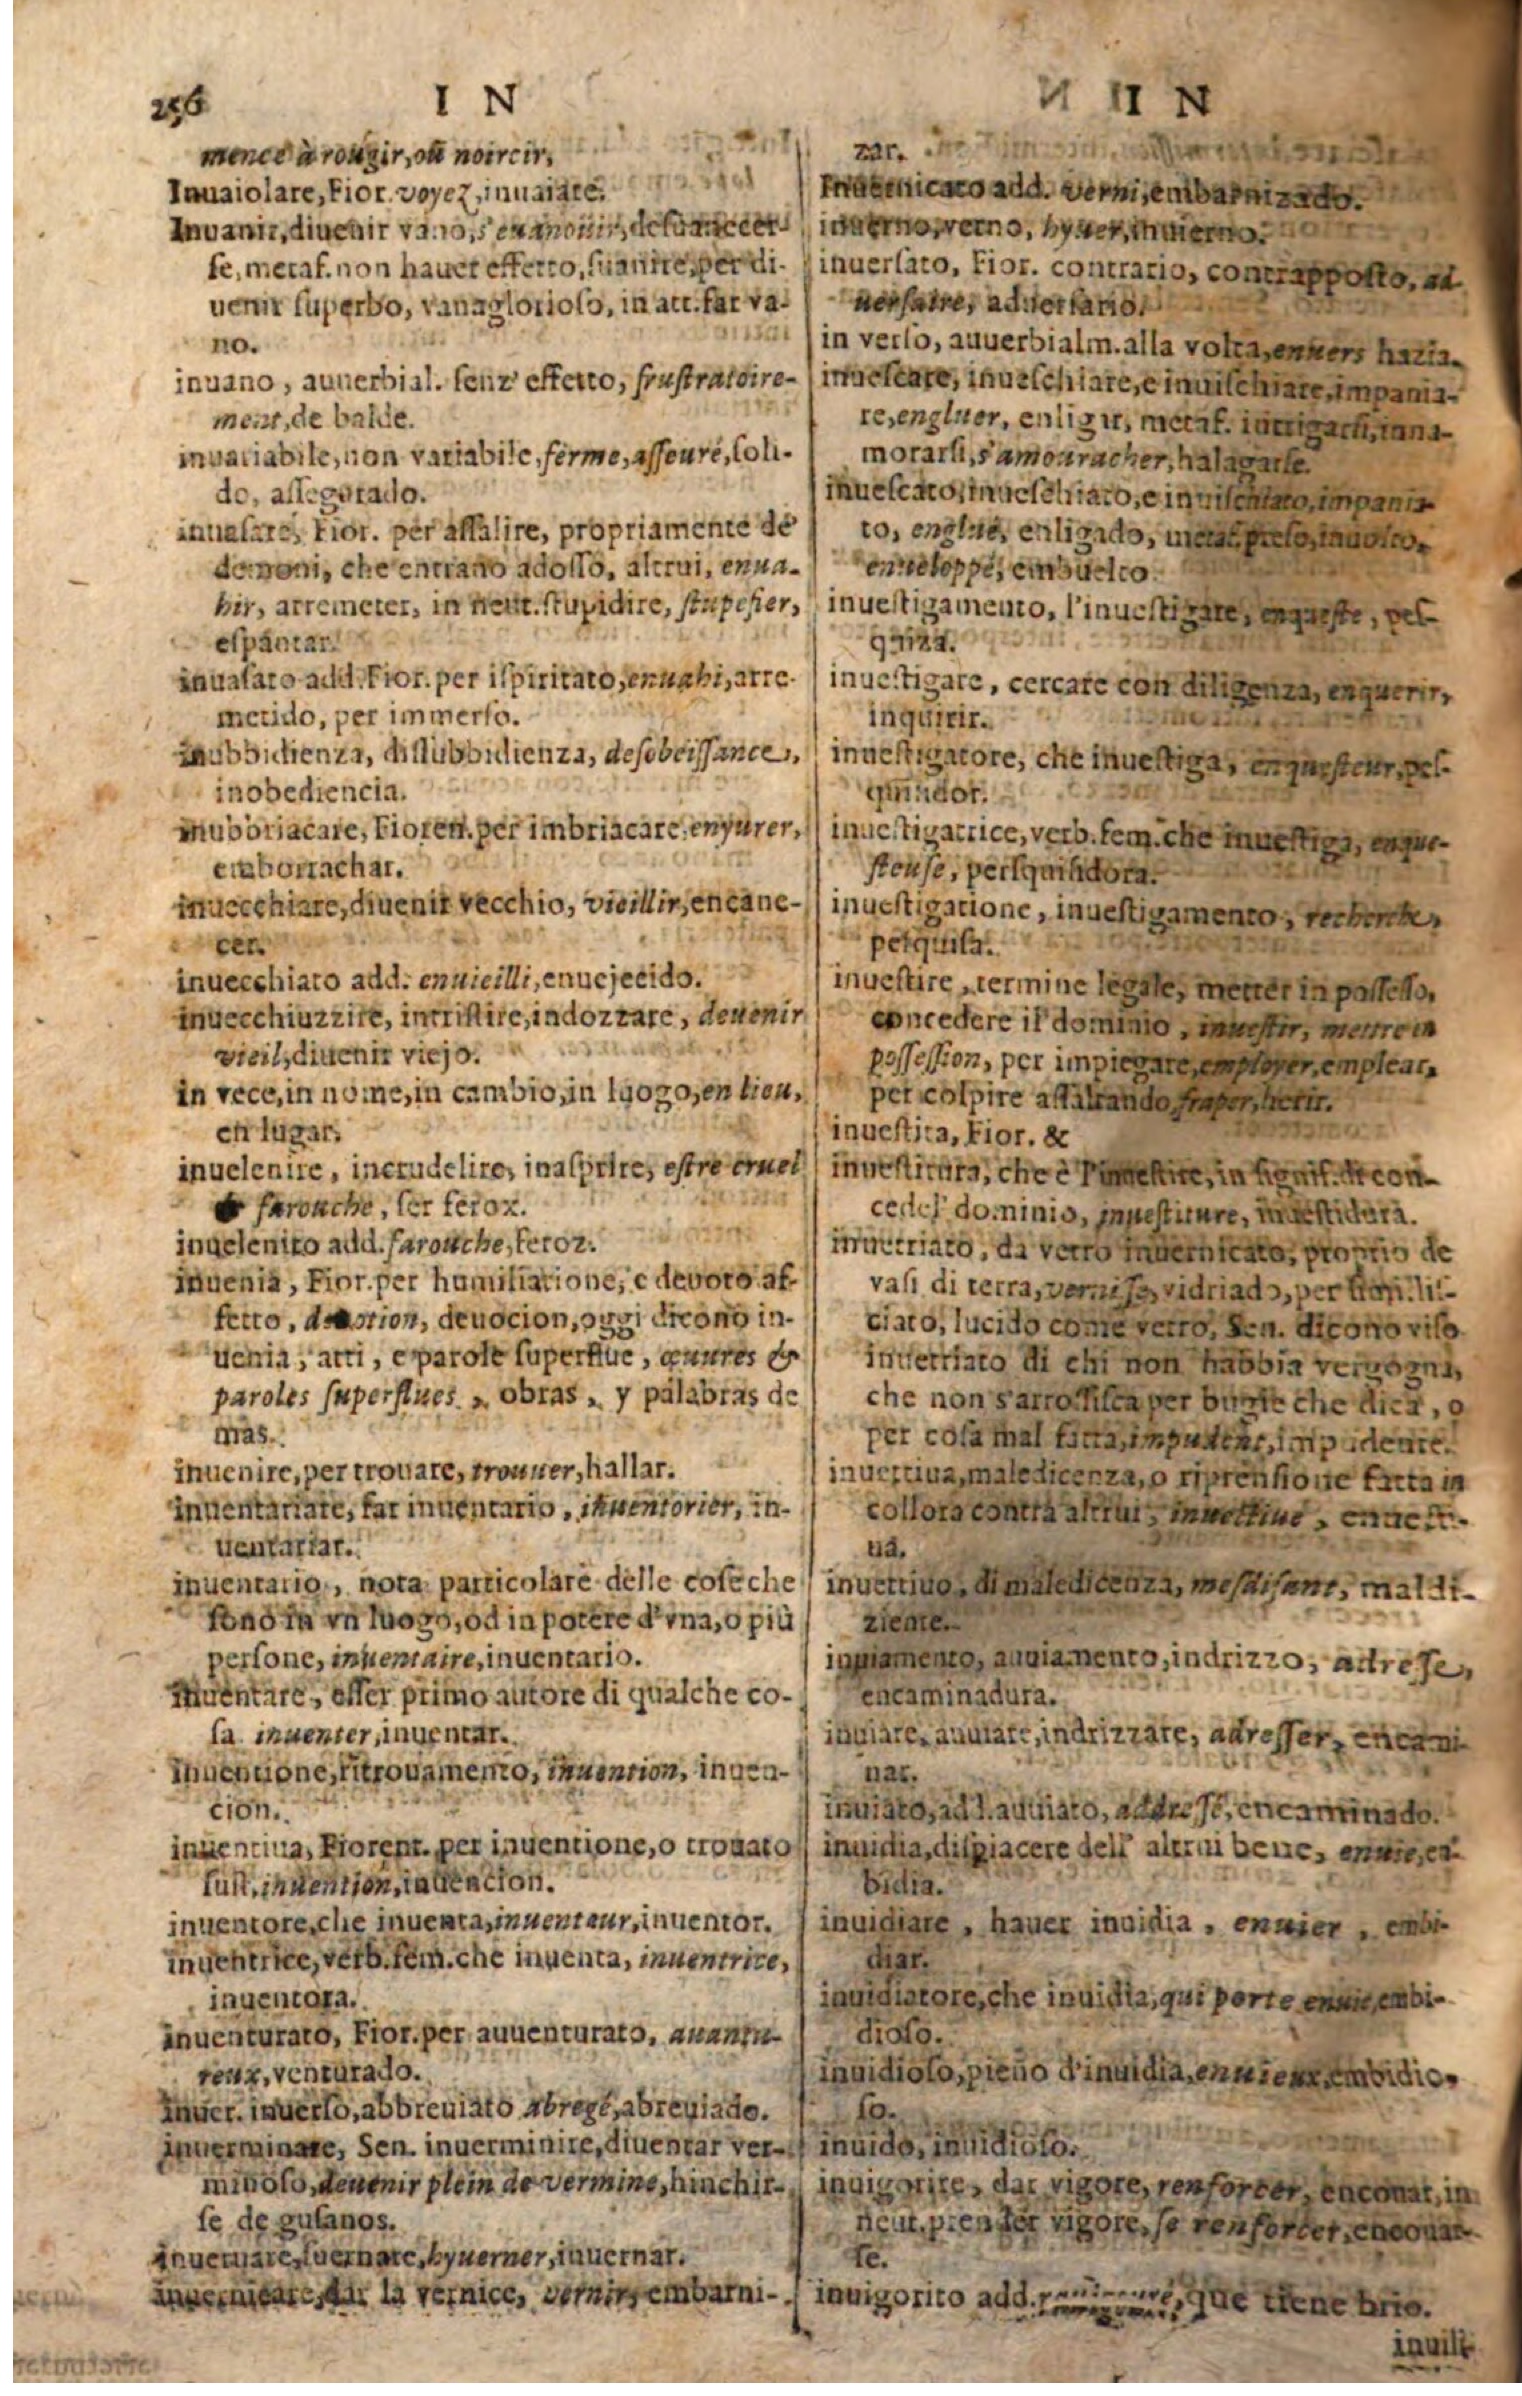 256
I N
mence à rougir, ou noircir,
Inuaiolare, Fior. voyez, inuaiate.
Inuanir, diuenir vano, s'euanouir, desuanecer-
se, metaf. non hauer effetto, suanire, per di-
uenir superbo, vanaglorioso, in att. far va-
no.
inuano, auuerbial. senz' effetto, frustratoire-
ment, de balde.
inuariabile, non variabile, ferme, asseuré, soli-
do, assegurado.
inuasare, Fior. per assalire, propriamente de'
demoni, che entrano adosso, altrui, enua-
hir, arremeter, in neut. stupidire, stupefier,
espantar.
inuasato add. Fior. per ispiritato, enuahi, arre-
metido, per immerso.
inubbidienza, dissubbidienza, desobeissance,
inobediencia.
inubbriacare, Fioren. per imbriacare, enyurer,
emborrachar.
inuecchiare, diuenir vecchio, vieillir, encane-
cer.
inuecchiato add. enuieilli, enuejecido.
inuecchiuzzire, intristire, indozzare, deuenir
vieil, diuenir viejo.
in vece, in nome, in cambio, in luogo, en lieu,
en lugar.
inuelenire, incrudelire, inasprire, estre cruel
& farouche, ser ferox.
inuelenito add. farouche, feroz.
inuenia, Fior. per humiliatione, e deuoto af-
fetto, deuotion, deuocion, oggi dicono in-
uenia, atti, e parole superflue, œuures &
paroles superflues, obras, y palabras de
mas.
inuenire, per trouare, trouuer, hallar.
inuentariare, far inuentario, inuentorier, in-
uentariar.
inuentario, nota particolare delle cose che
sono in vn luogo, od in potere d'vna, o più
persone, inuentaire, inuentario.
inuentare, esser primo autore di qualche co-
sa inuenter, inuentar.
inuentione, ritrouamento, inuention, inuen-
cion.
inuentiua, Fiorent. per inuentione, o trouato
sust. inuention, inuencion.
inuentore, che inuenta, inuenteur, inuentor.
inuentrice, verb. fem. che inuenta, inuentrice,
inuentora.
inuenturato, Fior. per auuenturato, auantu-
reux, venturado.
inuer. inuerso, abbreuiato abregé, abreuiado.
inuerminare, Sen. inuerminire, diuentar ver-
minoso, deuenir plein de vermine, hinchir-
se de gusanos.
inuernare, suernare, hyuerner, inuernar.
inuernicare, dar la vernice, vernir, embarni-
I N
zar.
Inuernicato add. verni, embarnizado.
inuerno, verno, hyuer, inuierno.
inuersato, Fior. contrario, contrapposto, ad-
uersaire, aduersario.
in verso, auuerbialm. alla volta, enuers hazia.
inuescare, inueschiare, e inuischiare, impania-
re, engluer, enligar, metaf. intrigarsi, inna-
morarsi, s'amouracher, halagarse.
inuescato, inueschiato, e inuischiato, impania-
to, englué, enligado, metaf. preso, inuolto,
enueloppé, embuelto.
inuestigamento, l'inuestigare, enqueste, pes-
quiza.
inuestigare, cercare con diligenza, enquerir,
inquirir.
inuestigatore, che inuestiga, enquesteur, pes-
quisidor.
inuestigatrice, verb. fem. che inuestiga, enque-
steuse, persquisidora.
inuestigatione, inuestigamento, recherche,
perquisa.
inuestire, termine legale, metter in possesso,
concedere il dominio, inuestir, mettre en
possession, per impiegare, employer, emplear,
per colpire assaltando, fraper, herir.
inuestita, Fior. &
inuestitura, che è l'inuestire, in signif. di con-
ceder dominio, inuestiture, inuestidura.
inuetriato, da vetro inuernicato, proprio de
vasi di terra, vernisé, vidriado, per simil. lis-
ciato, lucido come vetro, Sen. dicono viso
inuetriato di chi non habbia vergogna,
che non s'arrossisca per bugie che dica, o
per cosa mal fatta, impudent, impudente.
inuettiua, maledicenza, o riprensione fatta in
collora contra altrui, inuectiue, enuecti-
ua.
inuettiuo, di maledicenza, mesdisant, maldi-
ziente.
inuiamento, auuiamento, indrizzo, adresse,
encaminadura.
inuiare, auuiare, indrizzare, adresser, encami-
nar.
inuiato, add. auuiato, addressé, encaminado.
inuidia, dispiacere dell' altrui bene, enuie, en-
bidia.
inuidiare, hauer inuidia, enuier, embi-
diar.
inuidiatore, che inuidia, qui porte enuie, embi-
dioso.
inuidioso, pieno d'inuidia, enuieux, embidio-
so.
inuido, inuidioso.
inuigorire, dar vigore, renforcer, enconar, in
neut. prender vigore, se renforcer, enconar-
se.
inuigorito add. que tiene brio.
inuili-